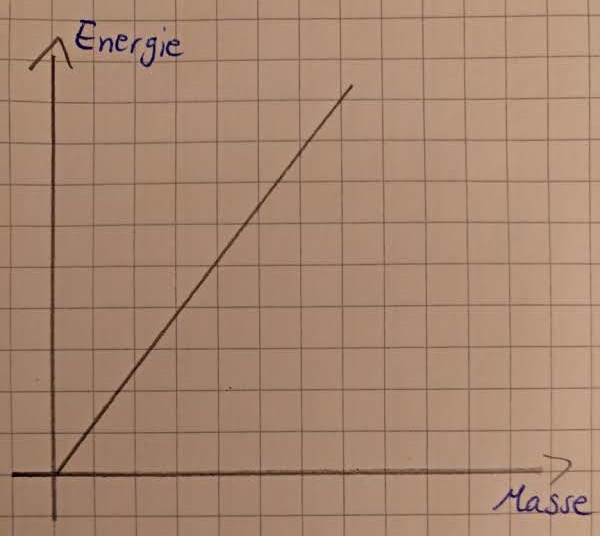 Energie
Masse